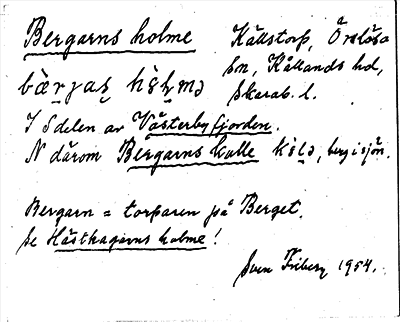 Bergarns holme
Källstorp, Örslösa
sn, Kållands hd,
Skarab. l.
bæ̀rjas hɔ̀lmə
I S delen av Västerbyfjorden.
N därom Bergarns kalle kàlə, berg i sjön.
Bergarn = torparen på Berget.
se Hästhagarns holme!
Sven Friberg 1954.